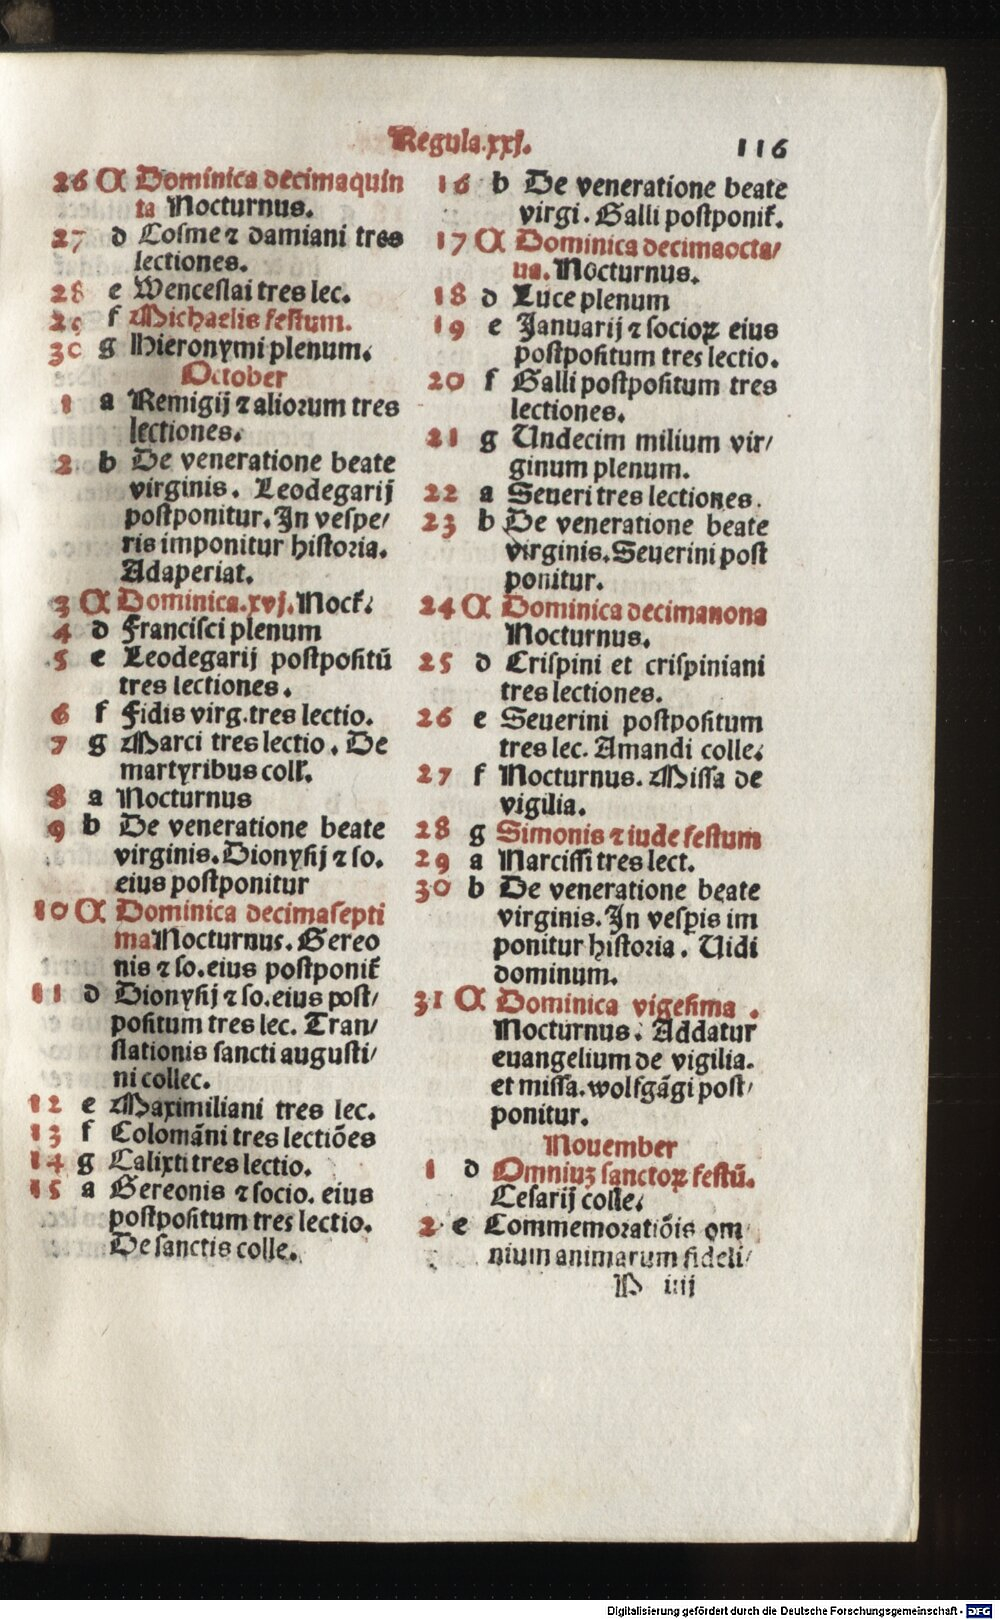 Regula.xxj.
116
26 A Dominica decimaquin
ta Nocturnus.
27 d Cosme ⁊ damiani tres
lectiones.
28 e Wenceslai tres lec.
29 f Michaelis festum.
30 g Hieronymi plenum.
October
1 a Remigij ⁊ aliorum tres
lectiones.
2 b De veneratione beate
virginis. Leodegarij
postponitur. In vespe/
ris imponitur historia.
Adaperiat.
3 A Dominica.xvj. Noct̃.
4 d Francisci plenum
5 e Leodegarij postpositũ
tres lectiones.
6 f Fidis virg. tres lectio.
7 g Marci tres lectio. De
martyribus coll̃.
8 a Nocturnus
9 b De veneratione beate
virginis. Dionysij ⁊ so.
eius postponitur
10 A Dominica decimasepti
ma Nocturnus. Gereo
nis ⁊ so. eius postponit̃
11 d Dionysij ⁊ so. eius post/
positum tres lec. Tran/
slationis sancti augusti/
ni collec.
12 e Maximiliani tres lec.
13 f Colomãni tres lectiões
14 g Calixti tres lectio.
15 a Gereonis ⁊ socio. eius
postpositum tres lectio.
De sanctis colle.
16 b De veneratione beate
virgi. Galli postponit̃.
17 A Dominica decimaocta/
ua. Nocturnus.
18 d Luce plenum
19 e Januarij ⁊ socioꝝ eius
postpositum tres lectio.
20 f Galli postpositum tres
lectiones.
21 g Undecim milium vir/
ginum plenum.
22 a Seueri tres lectiones.
23 b De veneratione beate
virginis. Seuerini post
ponitur.
24 A Dominica decimanona
Nocturnus.
25 d Crispini et crispiniani
tres lectiones.
26 e Seuerini postpositum
tres lec. Amandi colle.
27 f Nocturnus. Missa de
vigilia.
28 g Simonis ⁊ iude festum
29 a Narcissi tres lect.
30 b De veneratione beate
virginis. In vesp̲is im
ponitur historia. Uidi
dominum.
31 A Dominica vigesima.
Nocturnus. Addatur
euangelium de vigilia.
et missa. wolfgãgi post/
ponitur.
Nouember
1 d Omniuꝫ sanctoꝝ festũ.
Cesarij colle.
2 e Commemoratiõis om
nium animarum fideli/
P iiij
Digitalisierung gefördert durch die Deutsche Forschungsgemeinschaft - DFG